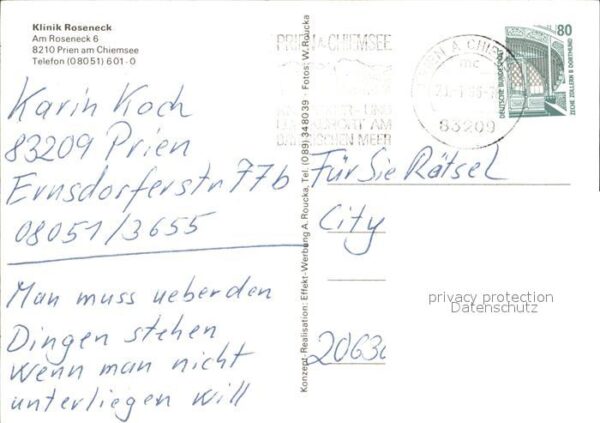 Klinik Roseneck
Am Roseneck 6
8210 Prien am Chiemsee
Telefon (08051) 601-0
Karin Koch
83209 Prien
Ernsdorferstr 77b
08051/3655
Man muss ueber den
Dingen stehen
wenn man nicht
unterliegen will
Konzept-Realisation: Effekt-Werbung A. Roucka, Tel. (089) 348039 · Fotos: W. Roucka
PRIEN A CHIEMSEE
AM
BAYERISCHEN MEER
PRIEN A CHIEMSEE
mc
83209
80
DEUTSCHE BUNDESPOST
ZECHE ZOLLERN II DORTMUND
Für Sie Rätsel
City
2063
privacy protection
Datenschutz